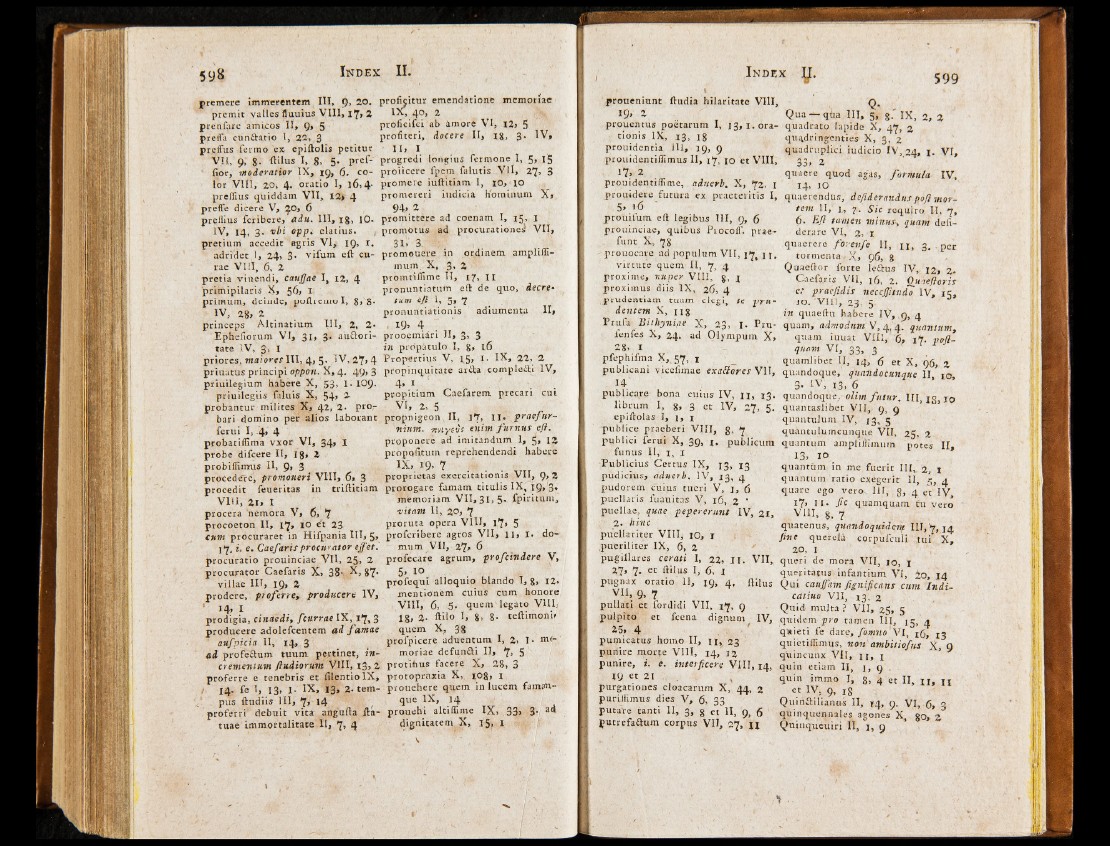 598 INDEX II.
premere immerentem III, 9, 20.
premit valles fluuius VIII, 17, 2
prenſare amicos II, 9, 5
preſſa cunctatio I, 22, 3
preſſus ſermo ex epiſtolis petitur
VII, 9, 8. ſtilus I, 8, 5. preſ-
ſior, moderatior IX, 19, 6. co-
lor VIII, 20, 4. oratio I, 16, 4.
preſſius quiddam VII, 12, 4
preſſe dicere V, 20, 6
preſſius ſcribere, adu. III, 18, 10.
IV, 14, 3. vbi opp. elatius.
pretium accedit agris VI, 19, 1.
adridet I, 24, 3. viſum eſt cu-
rae VIII, 6, 2
pretia viuendi, cauſſae I, 12, 4
primipilaris X, 56, 1
primum, deinde, poſtremo I, 8, 8.
IV, 28, 2
princeps Altinatium III, 2, 2.
Epheſiorum VI, 31, 3. auctori-
tate IV, 3, 1
priores, maiores III, 4, 5. IV, 27, 4
priuatus principi oppon. X, 4. 49, 3
priuilegium habere X, 53, 1. 109.
priuilegiis ſaluis X, 54, 2
probantur milites X, 42, 2. pro-
bari domino per alios laborant
ſerui I, 4, 4
probatiſſima vxor VI, 34, 1
probe diſcere II, 18, 2
probiſſimus II, 9, 3
procedere, promoueri VIII, 6, 3
procedit ſeueritas in triſtitiam
VIII, 21, 1
procera nemora V, 6, 7
procoeton II, 17, 10 et 23
cum procuraret in Hiſpania III, 5,
17. i. e. Caeſaris procurator eſſet.
procuratio prouinciae VII, 25, 2
procurator Caeſaris X, 38. X, 87.
villae III, 19, 2
prodere, proferre, producere IV,
14, 1
prodigia, cinaedi, ſcurrae IX, 17, 3
producere adoleſcentem ad famae
auſpicia II, 14, 3
ad profectum tuum pertinet, in-
crementum ſtudiorum VIII, 13, 2
proferre e tenebris et ſilentio IX,
14. ſe I, 13, 1. IX, 13, 2. tem-
pus ſtudiis III, 7, 14
proferri debuit vita anguſta ſta-
tuae immortalitate II, 7, 4
proficitur emendatione memoriae
IX, 40, 2
proficiſci ab amore VI, 12, 5
profiteri, docere II, 18, 3. IV,
11, 1
progredi longius ſermone I, 5, 15
proiicere ſpem ſalutis VII, 27, 3
promere iuſtitiam I, 10, 10
promereri iudicia hominum X,
94, 2
promittere ad coenam I, 15, 1
promotus ad procurationes VII,
31, 3
promouere in ordinem ampliſſi-
mum X, 3, 2
promtiſſime II, 17, 11
pronuntiatum eſt de quo, decre-
tum eſt I, 5, 7
pronuntiationis adiumenta II,
19, 4
prooemiari II, 3, 3
in propatulo I, 8, 16
Propertius V, 15, 1. IX, 22, 2
propinquitate arcta complecti IV,
4, 1
propitium Caeſarem precari cui
VI, 2, 5
propnigeon II, 17, 11. praefur-
nium. πνιγεὺς enim furnus eſt.
proponere ad imitandum I, 5, 12
propoſitum reprehendendi habere
IX, 19, 7
proprietas exercitationis VII, 9, 2
prorogare famam titulis IX, 19, 3.
memoriam VII, 31, 5. ſpiritum,
vitam II, 20, 7
proruta opera VIII, 17, 5
proſcribere agros VII, 11, 1. do-
mum VII, 27, 6
proſecare agrum, proſcindere V,
5, 10
proſequi alloquio blando I, 8, 12.
mentionem cuius cum honore
VIII, 6, 5. quem legato VIII,
18, 2. ſtilo I, 8, 8. teſtimoni
quem X, 38
proſpicere aduentum I, 2, 1. me-
moriae defuncti II, 7, 5
protinus facere X, 28, 3
protopraxia X, 108, 1
prouehere quem in lucem famam-
que IX, 14
prouehi altiſſime IX, 33, 3. ad
dignitatem X, 15, 1
INDEX II. 599
proueniunt ſtudia hilaritate VIII,
19, 2
prouentus poëtarum I, 13, 1. ora-
tionis IX, 13, 18
prouidentia III, 19, 9
prouidentiſſimus II, 17, 10 et VIII,
17, 2
prouidentiſſime, aduerb. X, 72, 1
prouidere futura ex praeteritis I,
5, 16
prouiſum eſt legibus III, 9, 6
prouinciae, quibus Procoſſ. prae-
ſunt X, 78
prouocare ad populum VII, 17, 11.
virtute quem II, 7, 4
proxime, nuper VIII, 8, 1
proximus diis IX, 26, 4
prudentiam tuam elegi, te pru-
dentem X, 118
Pruſa Bithyniae X, 23, 1. Pru-
ſenſes X, 24. ad Olympum X,
28, 1
pſephiſma X, 57, 1
publicani vicefimae exactores VII,
14
publicare bona cuius IV, 11, 13.
librum I, 8, 3 et IV, 27, 5.
epiſtolas I, 1, 1
publice praeberi VIII, 8, 7
publici ſerui X, 39, 1. publicum
funus II, 1, 1
Publicius Certus IX, 13, 13
pudicius, aduerb. IV, 13, 4
pudorem cuius tueri V, 1, 6
puellaris ſuauitas V, 16, 2
puellae, quae pepererunt IV, 21,
2. hinc
puellariter VIII, 10, 1
pueriliter IX, 6, 2
pugillares cerati I, 22, 11. VII,
27, 7. et ſtilus I, 6, 1
pugnax oratio II, 19, 4. ſtilus
VII, 9, 7
pullati et ſordidi VII, 17, 9
pulpito et ſcena dignum IV,
25, 4
pumicatus homo II, 11, 23
punire morte VIII, 14, 12
punire, i. e. interficere VIII, 14,
19 et 21
purgationes cloacarum X, 44, 2
puriſſimus dies V, 6, 33
putare tanti II, 3, 8 et II, 9, 6
putrefactum corpus VII, 27, 11
Q.
Qua — qua III, 5, 8. IX, 2, 2
quadrato lapide X, 47, 2
quadringenties X, 3, 2
quadruplici iudicio IV, 24, 1. VI,
33, 2
quaere quod agas, formula IV,
14, 10
quaerendus, deſiderandus poſt mor-
tem II, 1, 7. Sic requiro II, 7,
6. Eſt tamen minus, quam deſi-
derare VI, 2, 1
quaerere forenſe II, 11, 3. per
tormenta X, 96, 8
Quaeſtor ſorte lectus IV, 12, 2.
Caeſaris VII, 16, 2. Quaeſtoris
et praeſidis neceſſitudo IV, 15,
10. VIII, 23, 5
in quaeſtu habere IV, 9, 4
quam, admodum V, 4, 4. quantum,
quam iuuat VIII, 6, 17. poſt-
quam VI, 33, 3
quamlibet II, 14, 6 et X, 96, 2
quandoque, quandocunque II, 10,
3. IV, 13, 6
quandoque, olim futur. III, 18, 10
quantaslibet VII, 9, 9
quantulum IV, 13, 5
quantulumcunque VII, 25, 2
quantum ampliſſimum potes II,
13, 10
quantum in me fuerit III, 2, 1
quantum ratio exegerit II, 5, 4
quare ego vero III, 8, 4 et IV,
17, 11. ſic quamquam tu vero
VIII, 8, 7
quatenus, quandoquidem III, 7, 14
ſine querela corpuſculi tui X,
20, 1
queri de mora VII, 10, 1
queritatus infantium VI, 20, 14
Qui cauſſam ſignificans cum Indi-
catiuo VII, 13, 2
Quid multa? VII, 25, 5
quidem pro tamen III, 15, 4
quieti ſe dare, ſomno VI, 16, 13
quietiſſimus, non ambitioſus X, 9
quincunx VII, 11, 1
quin etiam II, 1, 9
quin immo I, 8, 4 et II, 11, 11
et IV, 9, 18
Quinctilianus II, 14, 9. VI, 6, 3
quinquennales agones X, 80, 2
Quinqueuiri II, 1, 9